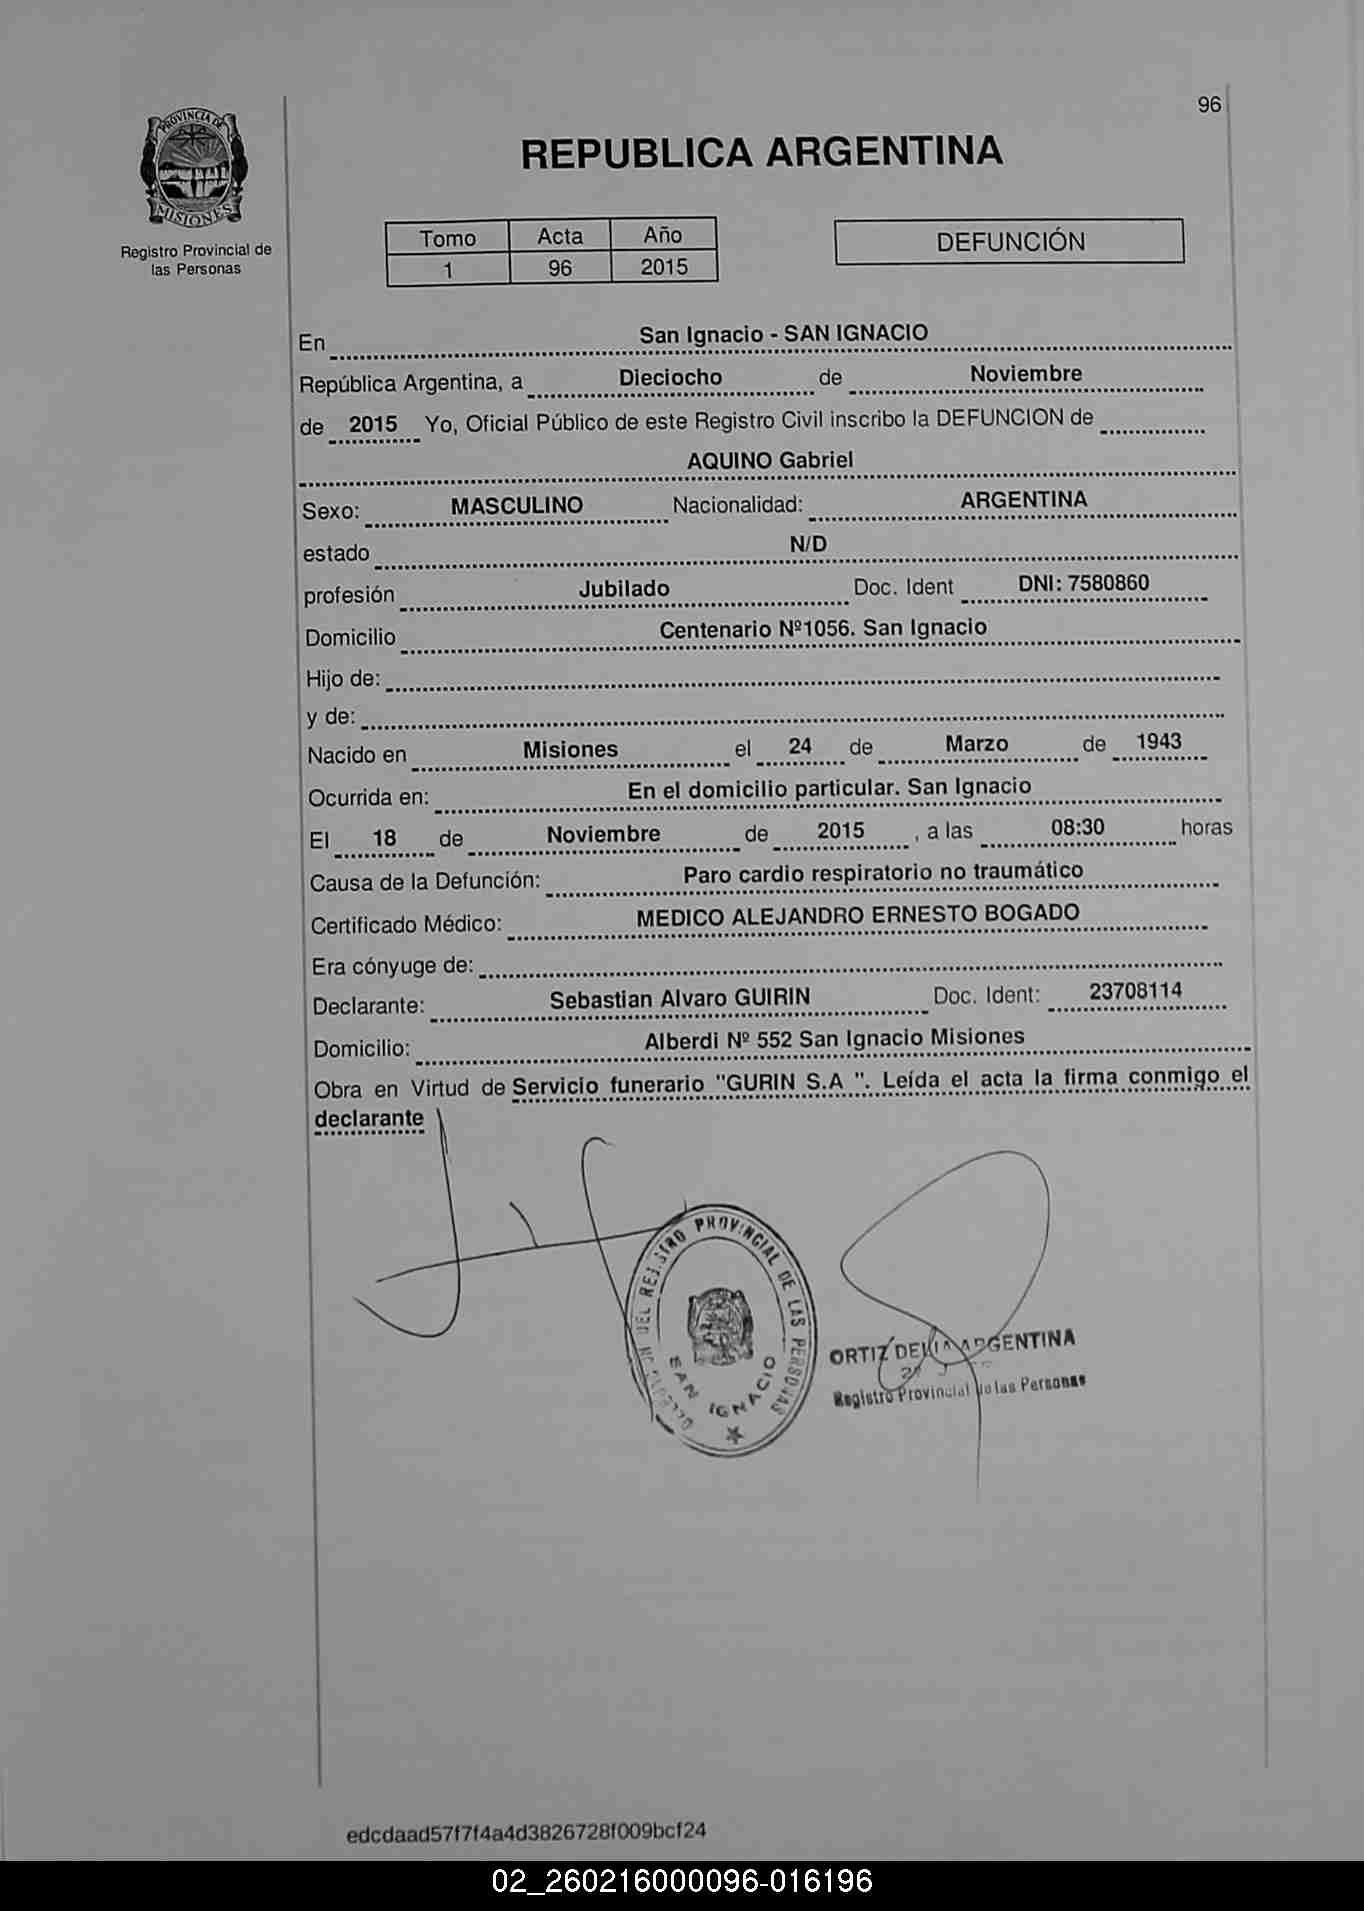 96
PROVINCIA DE
MISIONES
Registro Provincial de
las Personas
REPUBLICA ARGENTINA
Tomo Acta Año
1 96 2015
DEFUNCIÓN
En San Ignacio - SAN IGNACIO
República Argentina, a Dieciocho de Noviembre
de 2015 Yo, Oficial Público de este Registro Civil inscribo la DEFUNCION de
AQUINO Gabriel
Sexo: MASCULINO Nacionalidad: ARGENTINA
estado N/D
profesión Jubilado Doc. Ident DNI: 7580860
Domicilio Centenario Nº1056. San Ignacio
Hijo de:
y de:
Nacido en Misiones el 24 de Marzo de 1943
Ocurrida en: En el domicilio particular. San Ignacio
El 18 de Noviembre de 2015 , a las 08:30 horas
Causa de la Defunción: Paro cardio respiratorio no traumático
Certificado Médico: MEDICO ALEJANDRO ERNESTO BOGADO
Era cónyuge de:
Declarante: Sebastian Alvaro GUIRIN Doc. Ident: 23708114
Domicilio: Alberdi Nº 552 San Ignacio Misiones
Obra en Virtud de Servicio funerario "GURIN S.A ". Leída el acta la firma conmigo el
declarante
DEL REGISTRO PROVINCIAL DE LAS PERSONAS
SAN IGNACIO
ORTIZ DELIA ARGENTINA
Registro Provincial de las Personas
edcdaad57f7f4a4d3826728f009bcf24
02_260216000096-016196